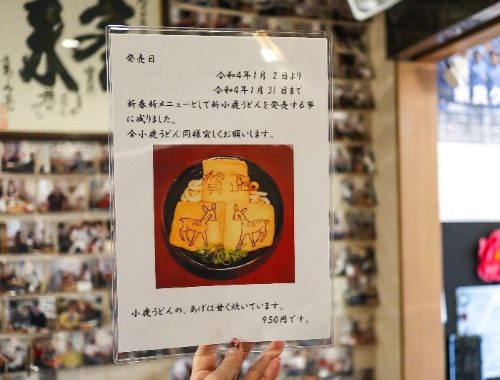 発売日
令和4年1月2日より
令和4年1月31日まで
新春新メニューとして新小鹿うどんを発売する事
に成りました。
全小鹿うどん同様宜しくお願いします。
賀正
小鹿うどんの、あげは甘く炊いています。
950円です。